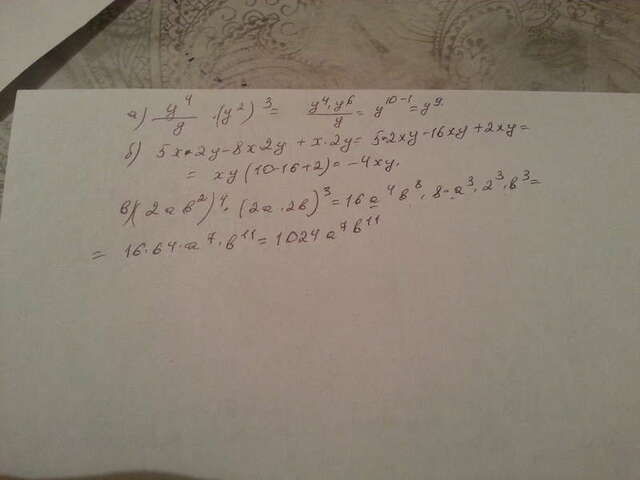 а) y⁴/y · (y²)³ = y⁴·y⁶/y = y¹⁰⁻¹ = y⁹.
б) 5x·2y-8x·2y + x·2y = 5·2xy-16xy+2xy =
= xy(10-16+2) = -4xy.
в) (2aв²)⁴ · (2a·2в)³ = 16a⁴в⁸ · 8·a³·2³·в³ =
= 16·64·a⁷·в¹¹ = 1024a⁷в¹¹